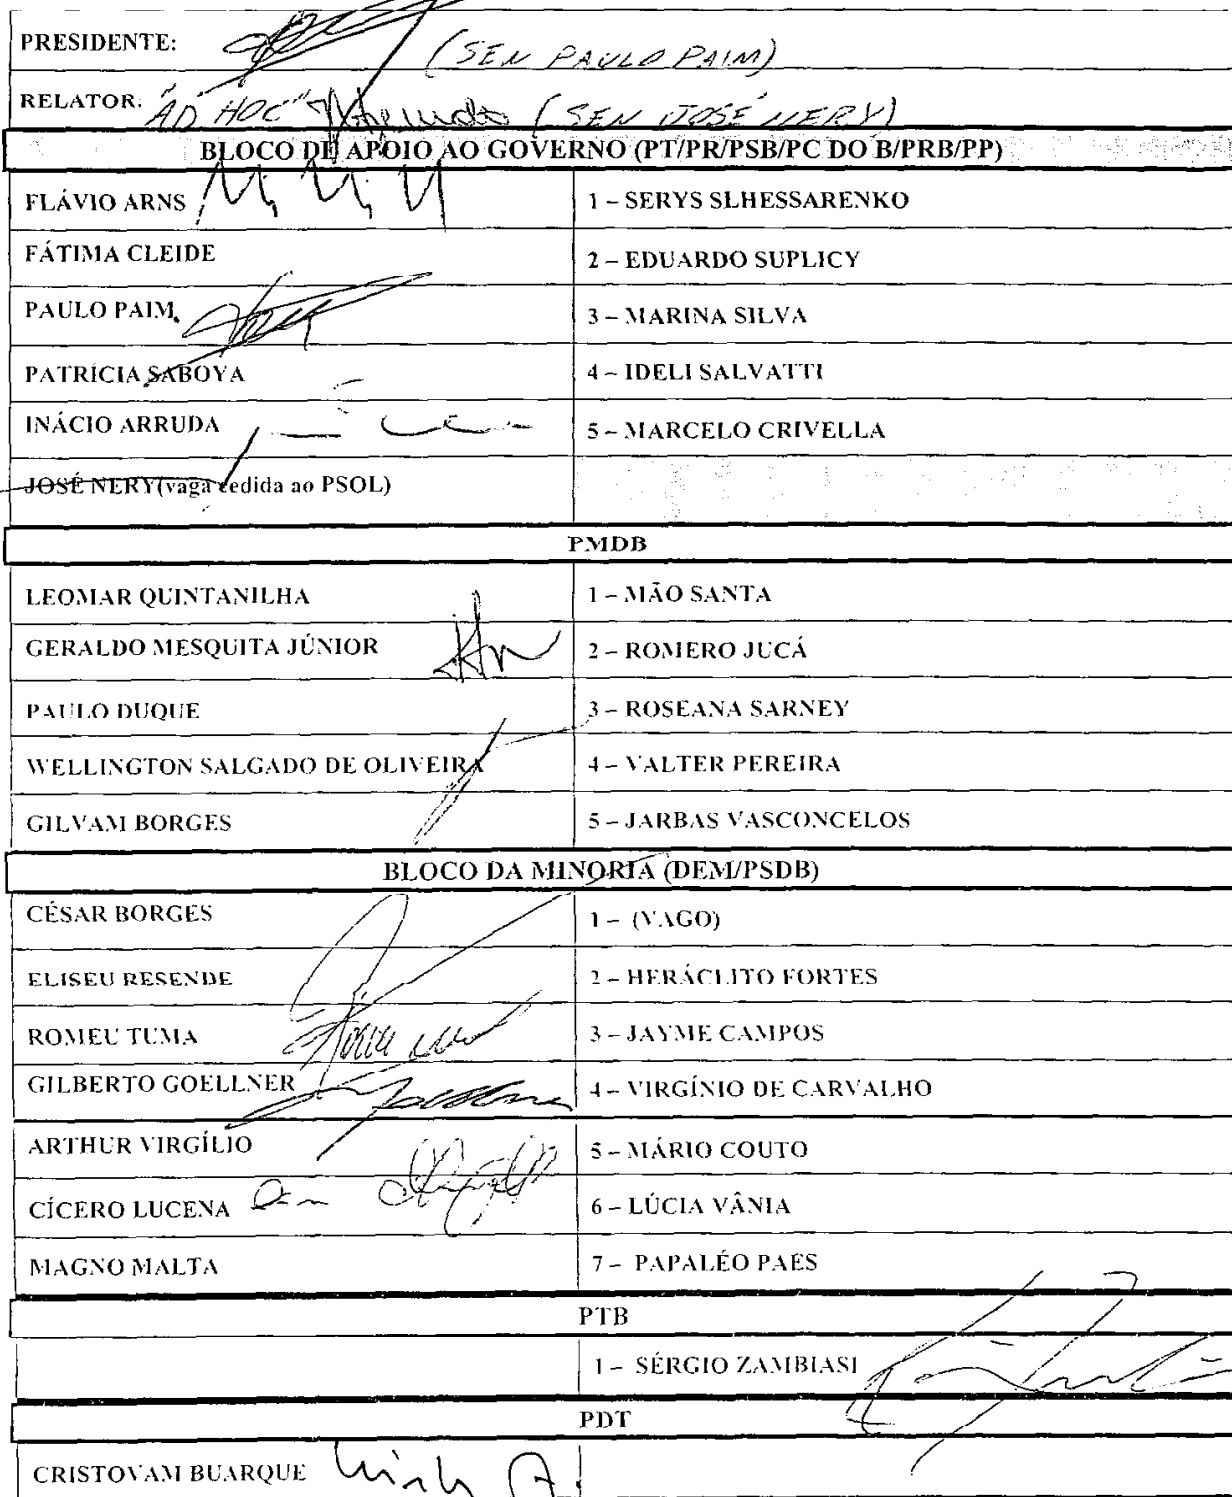 PRESIDENTE: (SEN PAULO PAIM)
RELATOR: "AD HOC" (SEN JOSÉ NERY)
BLOCO DE APOIO AO GOVERNO (PT/PR/PSB/PC DO B/PRB/PP)
FLÁVIO ARNS 1 – SERYS SLHESSARENKO
FÁTIMA CLEIDE 2 – EDUARDO SUPLICY
PAULO PAIM 3 – MARINA SILVA
PATRÍCIA SABOYA 4 – IDELI SALVATTI
INÁCIO ARRUDA 5 – MARCELO CRIVELLA
JOSÉ NERY(vaga cedida ao PSOL)
PMDB
LEOMAR QUINTANILHA 1 – MÃO SANTA
GERALDO MESQUITA JÚNIOR 2 – ROMERO JUCÁ
PAULO DUQUE 3 – ROSEANA SARNEY
WELLINGTON SALGADO DE OLIVEIRA 4 – VALTER PEREIRA
GILVAM BORGES 5 – JARBAS VASCONCELOS
BLOCO DA MINORIA (DEM/PSDB)
CÉSAR BORGES 1 – (VAGO)
ELISEU RESENDE 2 – HERÁCLITO FORTES
ROMEU TUMA 3 – JAYME CAMPOS
GILBERTO GOELLNER 4 – VIRGÍNIO DE CARVALHO
ARTHUR VIRGÍLIO 5 – MÁRIO COUTO
CÍCERO LUCENA 6 – LÚCIA VÂNIA
MAGNO MALTA 7 – PAPALÉO PAES
PTB
1 – SÉRGIO ZAMBIASI
PDT
CRISTOVAM BUARQUE